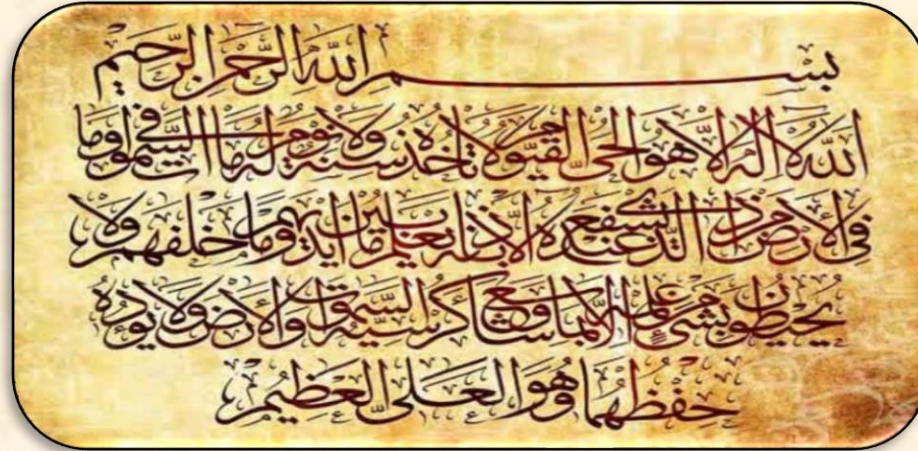 بِسْمِ اللَّهِ الرَّحْمَٰنِ الرَّحِيمِ
اللَّهُ لَا إِلَٰهَ إِلَّا هُوَ الْحَيُّ الْقَيُّومُ لَا تَأْخُذُهُ سِنَةٌ وَلَا نَوْمٌ لَهُ مَا فِي السَّمَاوَاتِ وَمَا
فِي الْأَرْضِ مَنْ ذَا الَّذِي يَشْفَعُ عِنْدَهُ إِلَّا بِإِذْنِهِ يَعْلَمُ مَا بَيْنَ أَيْدِيهِمْ وَمَا خَلْفَهُمْ وَلَا
يُحِيطُونَ بِشَيْءٍ مِنْ عِلْمِهِ إِلَّا بِمَا شَاءَ وَسِعَ كُرْسِيُّهُ السَّمَاوَاتِ وَالْأَرْضَ وَلَا يَئُودُهُ
حِفْظُهُمَا وَهُوَ الْعَلِيُّ الْعَظِيمُ